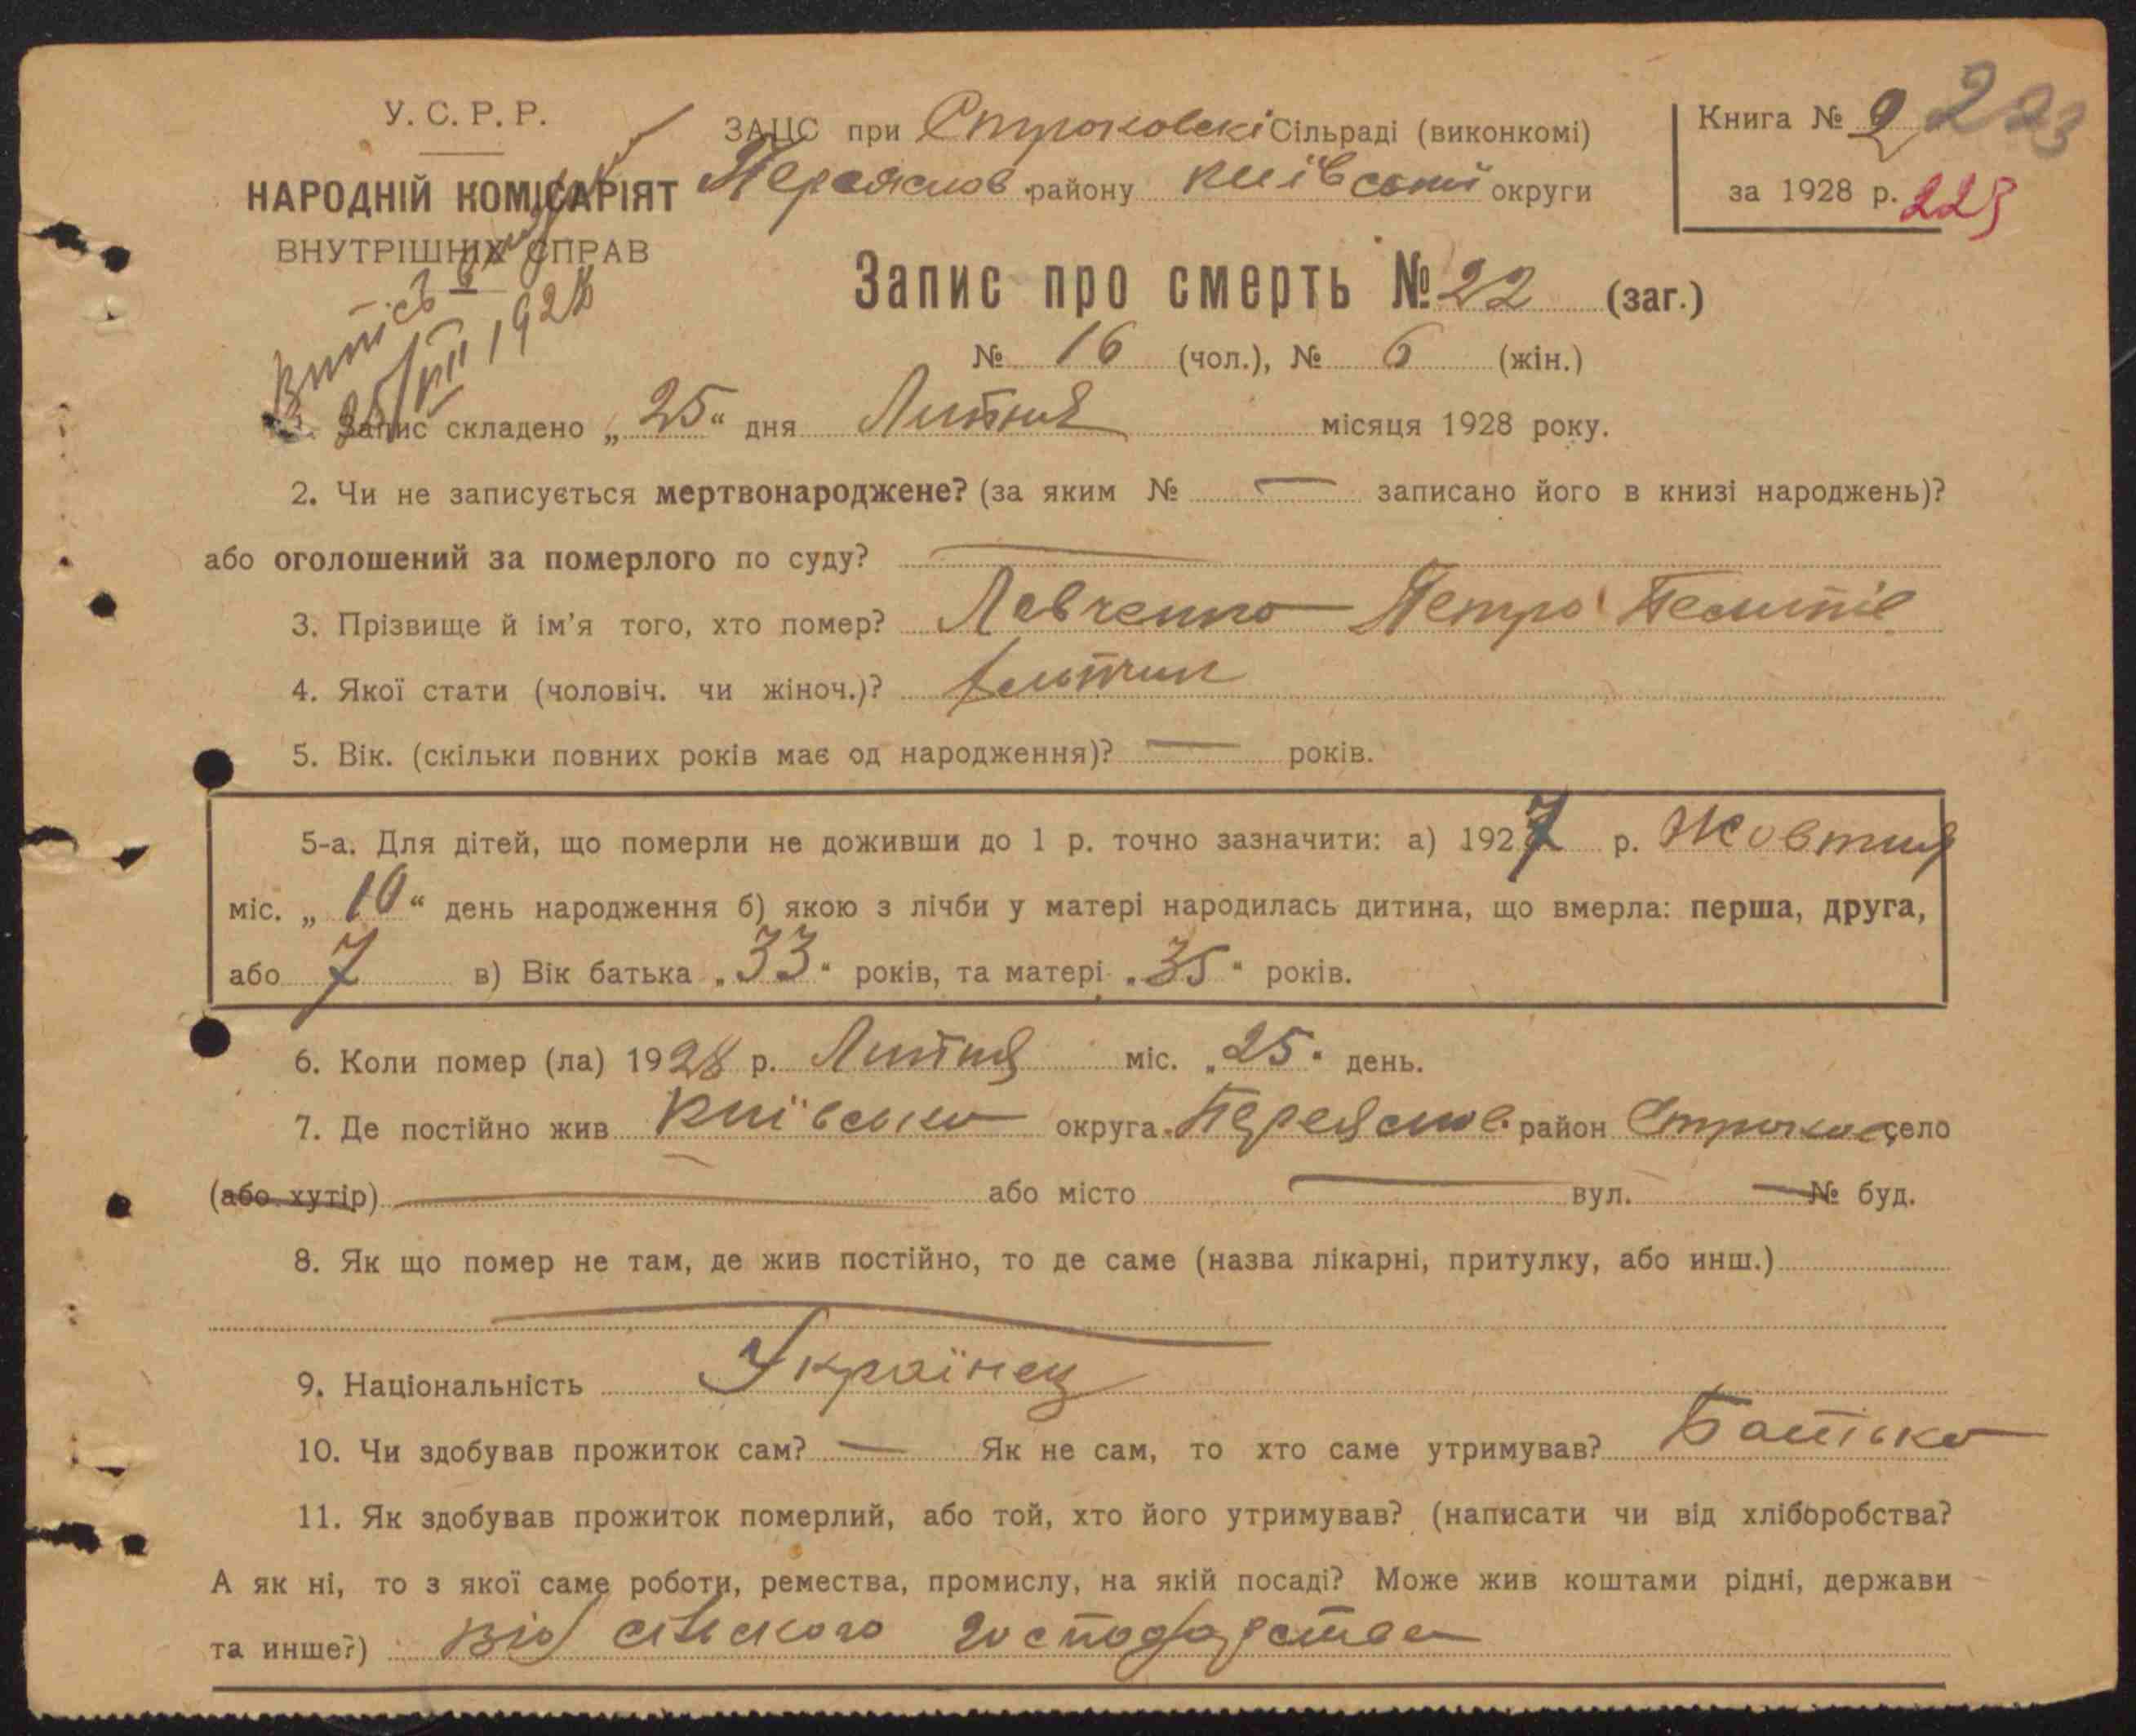 У. С. Р. Р.
НАРОДНІЙ КОМІСАРІЯТ
ВНУТРІШНІХ СПРАВ
25/VII 1928
ЗАЦС при Строковскі Сільраді (виконкомі)
Переяслов району київської округи
Книга № 2 223
за 1928 р. 225
Запис про смерть № 22 (заг.)
№ 16 (чол.), № 6 (жін.)
Запис складено „25“ дня Липня місяця 1928 року.
2. Чи не записується мертвонароджене? (за яким № — записано його в книзі народжень)?
або оголошений за померлого по суду? —
3. Прізвище й ім’я того, хто помер? Левченко Петро
4. Якої стати (чоловіч. чи жіноч.)? хлопчик
5. Вік. (скільки повних років має од народження)? — років.
5-а. Для дітей, що померли не доживши до 1 р. точно зазначити: а) 1927 р. Жовтня
міс. „10“ день народження б) якою з лічби у матері народилась дитина, що вмерла: перша, друга,
або 7 в) Вік батька „33“ років, та матері „35“ років.
6. Коли помер (ла) 1928 р. Липня міс. „25“ день.
7. Де постійно жив Київська округа Переяслов. район Строкова село
(або хутір) — або місто — вул. — № буд.
8. Як що помер не там, де жив постійно, то де саме (назва лікарні, притулку, або инш.)
9. Національність Українец
10. Чи здобував прожиток сам? — Як не сам, то хто саме утримував? Батько
11. Як здобував прожиток померлий, або той, хто його утримував? (написати чи від хліборобства?
А як ні, то з якої саме роботи, ремества, промислу, на якій посаді? Може жив коштами рідні, держави
та инше?) від сільского господарства